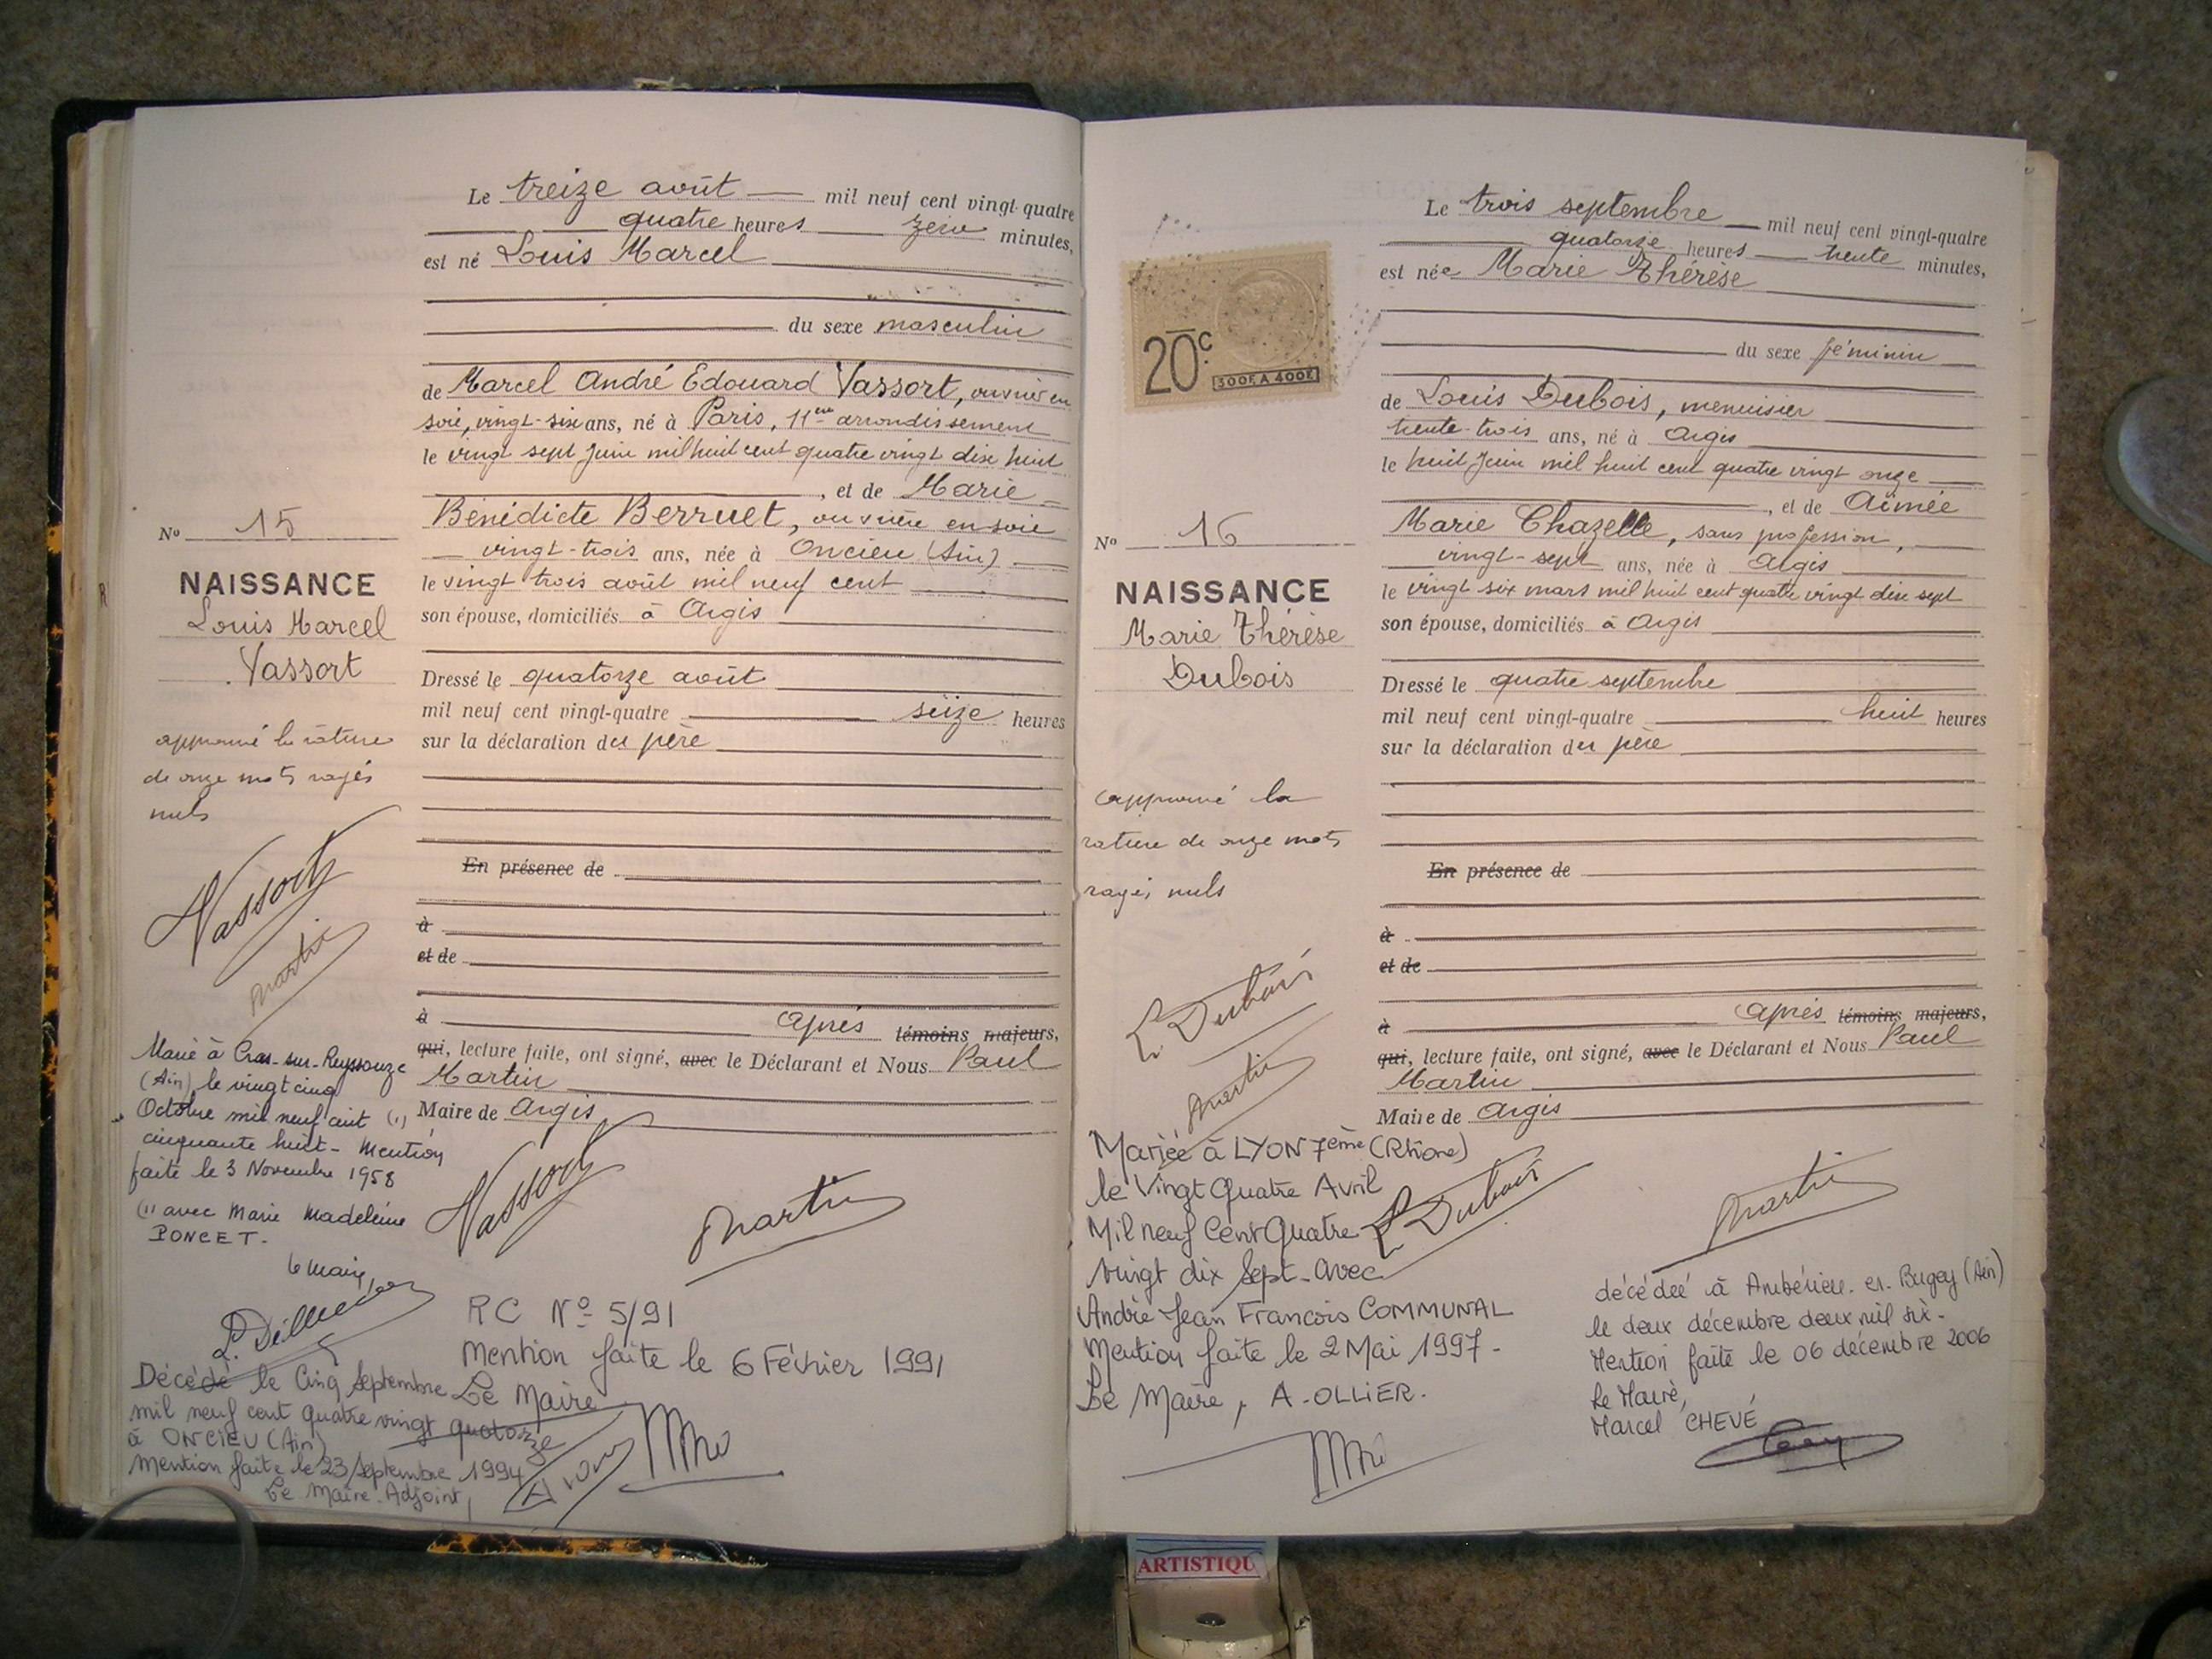 Le treize août mil neuf cent vingt-quatre
quatre heures zéro minutes,
est né Louis Marcel
du sexe masculin
de Marcel André Edouard Vassort, ouvrier en
soie, vingt-six ans, né à Paris, 11ème arrondissement
le vingt sept Juin mil huit cent quatre vingt dix huit
, et de Marie
Bénédicte Berruet, ouvrière en soie
vingt-trois ans, née à Oncieu (Ain)
le vingt trois août mil neuf cent
son épouse, domiciliés à Argis
Dressé le quatorze août
mil neuf cent vingt-quatre seize heures
sur la déclaration du père
En présence de
à
et de
à après témoins majeurs,
qui, lecture faite, ont signé, avec le Déclarant et Nous Paul
Martin
Maire de Argis
Vassort
Martin
No 15
NAISSANCE
Louis Marcel
Vassort
approuvé la rature
de onze mots rayés
nuls
Vassort
Martin
Marié à Cras-sur-Reyssouze
(Ain) le vingt cinq
Octobre mil neuf cent (1)
cinquante huit - Mention
faite le 3 Novembre 1958
(1) avec Marie Madeleine
PONCET.
le maire,
Décédé le Cinq Septembre
mil neuf cent quatre vingt quatorze
à ONCIEU (Ain)
Mention faite le 23 Septembre 1994
Le Maire-Adjoint,
RC No 5/91
Mention faite le 6 Février 1991
Le Maire
20c
300F A 400F
Le trois septembre mil neuf cent vingt-quatre
quatorze heures trente minutes,
est née Marie Thérèse
du sexe féminin
de Louis Dubois, menuisier
trente-trois ans, né à Argis
le huit Juin mil huit cent quatre vingt onze
, et de Aimée
Marie Chazelle, sans profession,
vingt-sept ans, née à Argis
le vingt six mars mil huit cent quatre vingt dix sept
son épouse, domiciliés à Argis
Dressé le quatre septembre
mil neuf cent vingt-quatre huit heures
sur la déclaration du père
En présence de
à
et de
à après témoins majeurs,
qui, lecture faite, ont signé, avec le Déclarant et Nous Paul
Martin
Maire de Argis
L. Dubois
Martin
No 16
NAISSANCE
Marie Thérèse
Dubois
approuvé la
rature de onze mots
rayés nuls
L. Dubois
Martin
Mariée à LYON 7ème (Rhône)
le Vingt Quatre Avril
Mil neuf Cent Quatre
Vingt dix Sept - avec
André Jean François COMMUNAL
Mention faite le 2 Mai 1997 -
Le Maire, A. OLLIER.
décédée à Ambérieu-en-Bugey (Ain)
le deux décembre deux mil six -
Mention faite le 06 décembre 2006
Le Maire,
Marcel CHEVÉ
ARTISTIQU